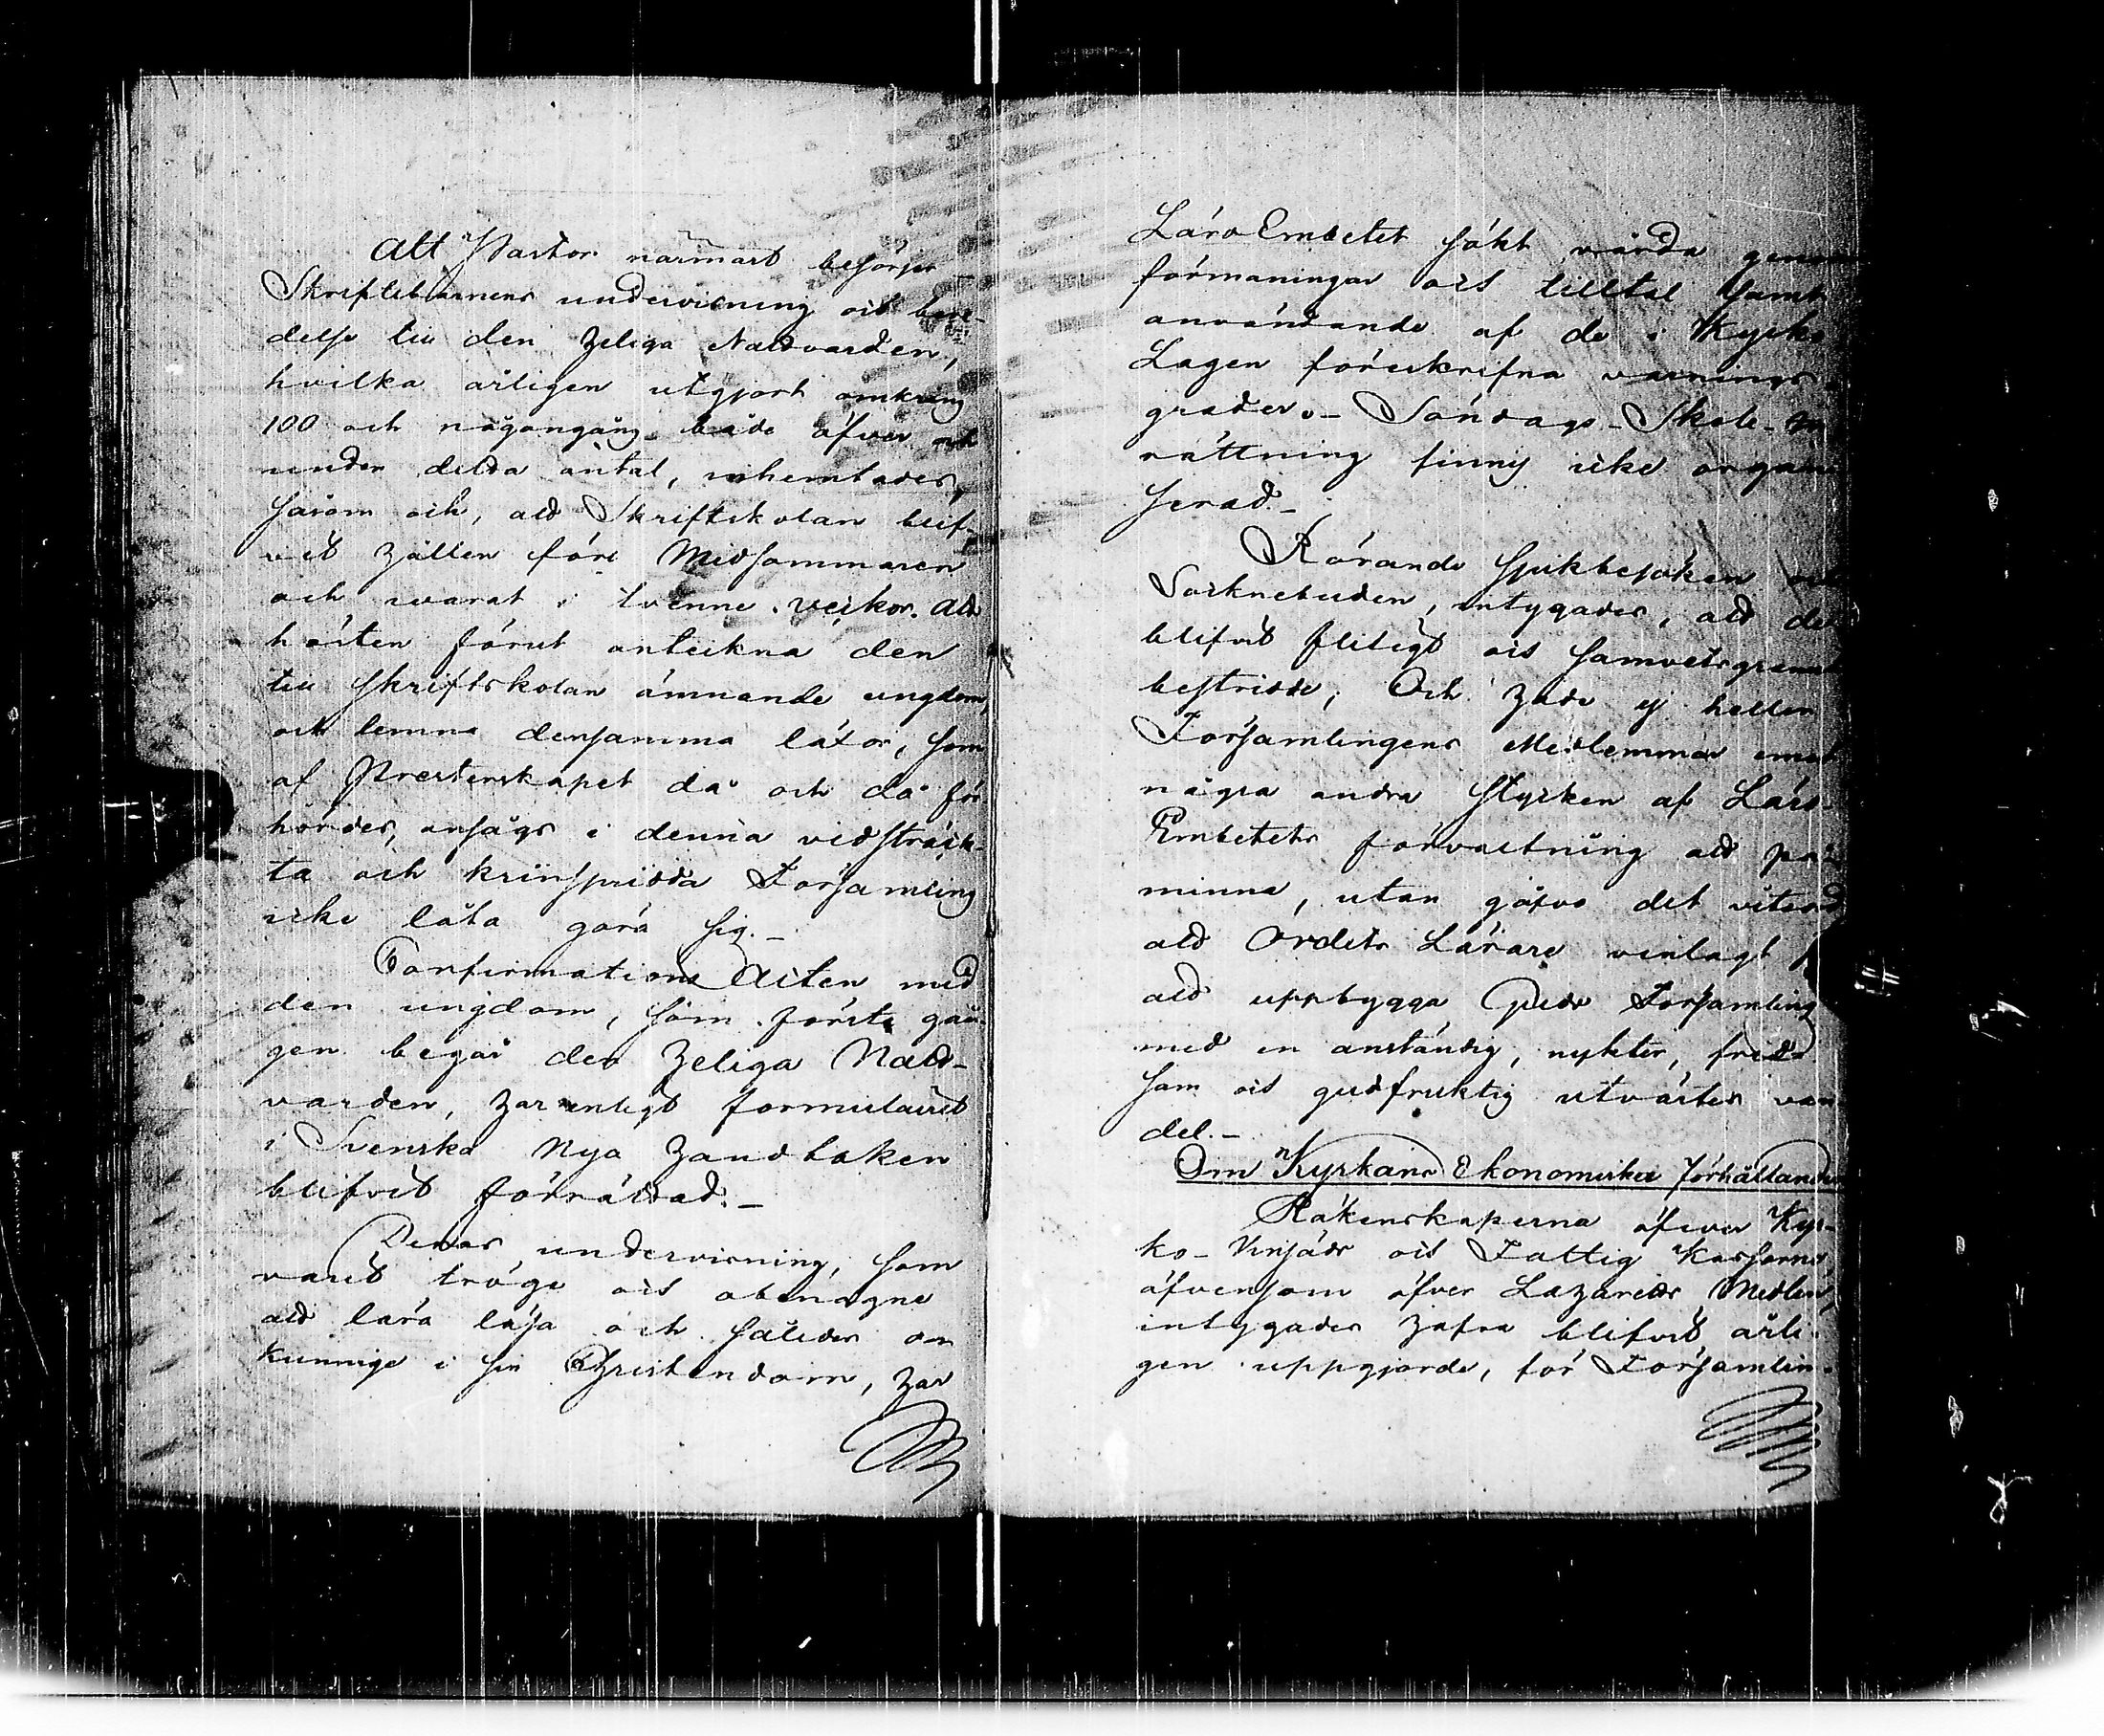 Att Pastor närmast besörjer
Skriftebarnens undervisning och bere-
delse till den heliga Nattvarden,
hvilka årligen utgjort omkring
100 och någongång både öfver och
under detta antal, inhemtades,
såsom ock, att Skriftskolan blif-
vit hållen före Midsommaren
och warat i tvenne veckor. Att
hösten förut anteckna den
till skriftskolan ämnande ungdom,
och lemna densamma läxor, som
af Presterskapet då och då för
hördes, ansågs i denna vidsträck-
ta och kringspridda Församling
icke låta göra sig.—
Confirmations Acten med
den ungdom, som första gån-
gen begår den heliga Natt-
varden, har enligt formulairet
i Svenska Nya handboken
blifvit förrättad.—
Deras undervisning, som
varit tröge och obenägne
att lära läsa och således o-
kunnige i sin Christendom, har
LäroEmbetet sökt vårda genom
förmaningar och tilltal samt
användande af de i Kyrko
Lagen föreskrifna varnings-
grader.— Söndags-Skole-In
rättning finnes icke organi
serad.—
Rörande sjukbesöken och
Socknebuden, intygades, att de
blifvit flitigt och samvetsgrant
bestridde; Och hade ej heller
Församlingens Medlemmar emot
några andra stycken af Läro-
Embetets förvaltning att på-
minna, utan gåfvo det vitsord
att Ordets Lärare vinlagt
att uppbygga Guds Församling
med en anständig, nykter, fred-
sam och gudfruktig utvärtes van
del.—
Om Kyrkans Ekonomiska förhållanden
Räkenskaperna öfver Kyr-
ko- Vinsäds och Fattig Kassorna,
äfvensom öfver Lazaretts Medlen,
intygades hafva blifvit årli-
gen uppgjorde, för Församlin-